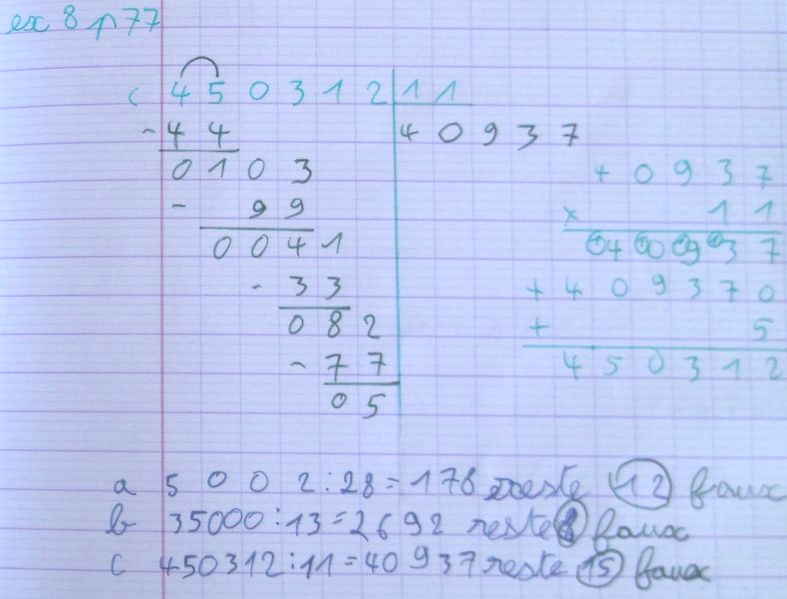 ex 8 p77
c 450312 11
- 44 40937
0103
+ 0937
- 99
x 11
0041
040937
- 33
+ 409370
082
+ 5
- 77
450312
05
a 5002 : 28 = 178 reste 12 faux
b 35000 : 13 = 2692 reste 8 faux
c 450312 : 11 = 40937 reste 15 faux